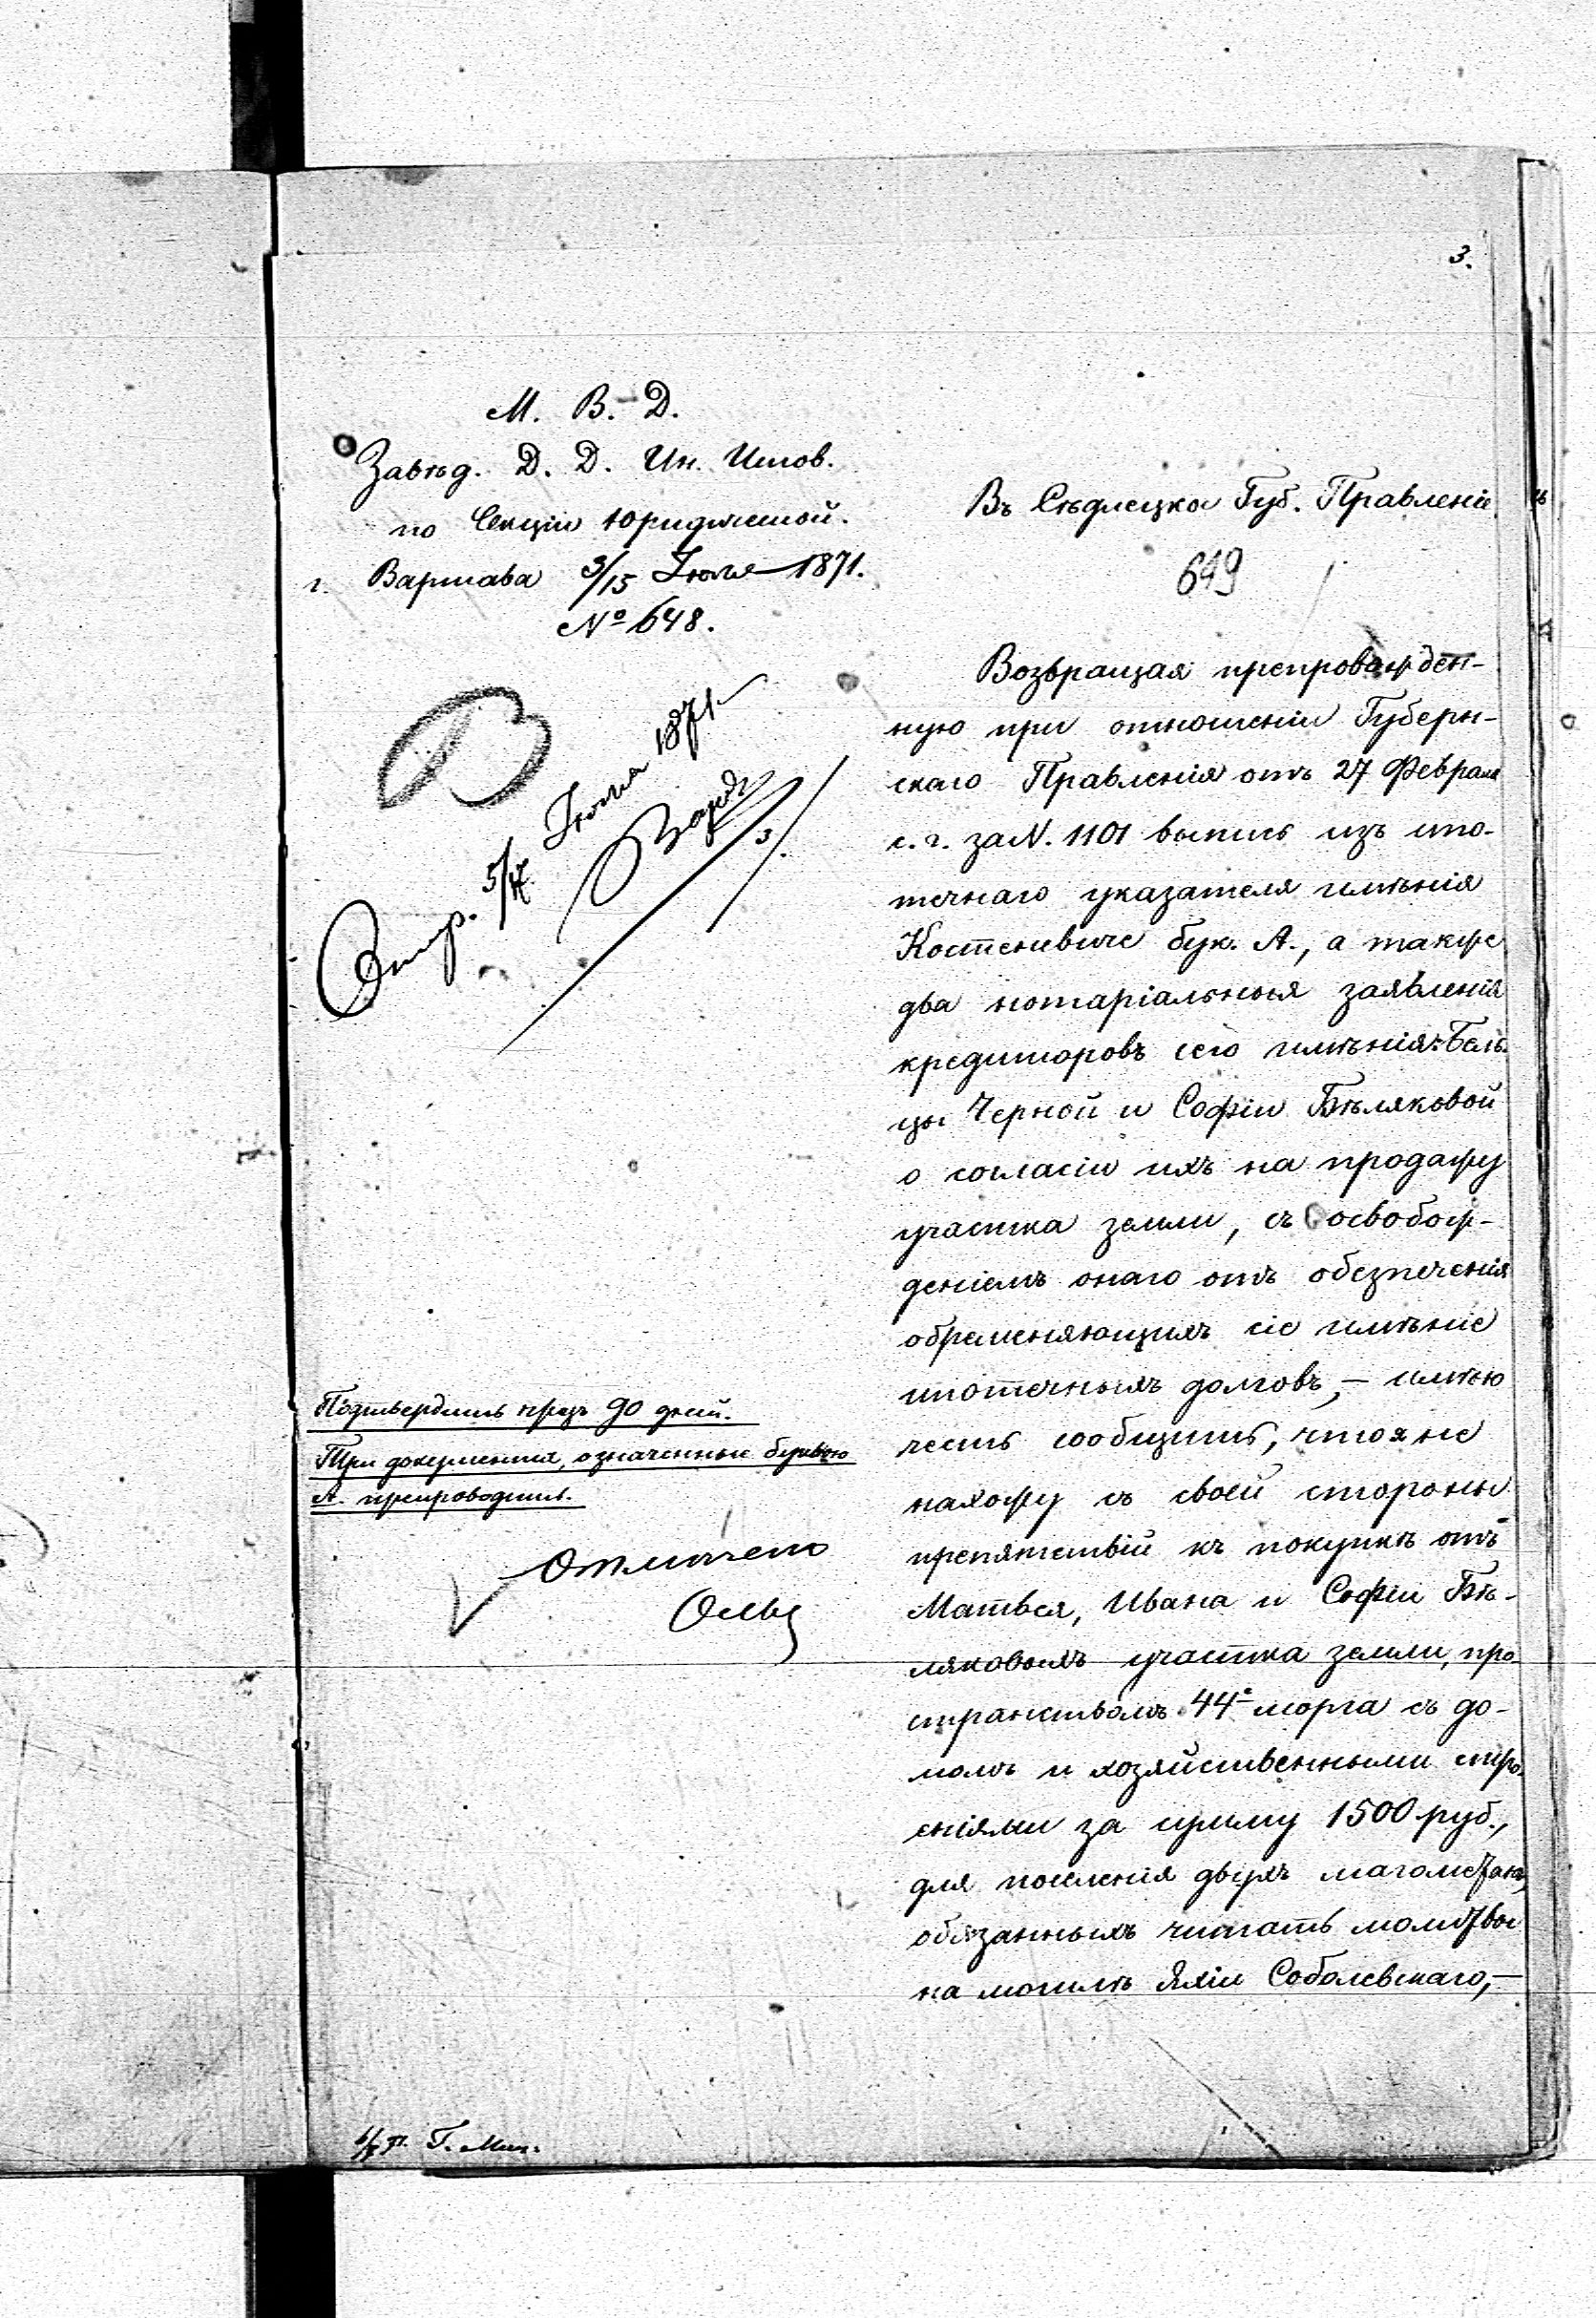 3.
М. В. Д.
Завѣд. Д. Д. Ин. Испов.
по Секціи Юридической.
г. Варшава 3/15 Іюля 1871.
№ 648.
Отпр. 5/17 Іюля 1871
3.
Подтвердить чрезъ 90 дней.
Три документа, означенные буквою
А. препроводить.
Отмѣчено
Въ Сѣдлецкое Губ. Правленіе
649
Возвращая препровожден-
ную при отношеніи Губерн-
скаго Правленія отъ 27 Февраля
с. г. за N. 1101 выпись изъ ипо-
течнаго указателя имѣнія
Костеневиче бук. А., а также
два нотаріальныя заявленія
кредиторовъ сего имѣнія: Бель-
цы Черной и Софіи Бѣляковой
о согласіи ихъ на продажу
участка земли, съ освобож-
деніемъ онаго отъ обезпеченія
обременяющихъ сіе имѣніе
ипотечныхъ долговъ, – имѣю
честь сообщить, что я не
нахожу съ своей стороны
препятствій къ покупкѣ отъ
Матвея, Ивана и Софіи Бѣ-
ляковыхъ участка земли, про-
странствомъ 44 морга съ до-
момъ и хозяйственными стро-
еніями за сумму 1500 руб.,
для поселенія двухъ магометанъ,
обязанныхъ читать молитвы
на могилѣ Яхіи Соболевскаго, –